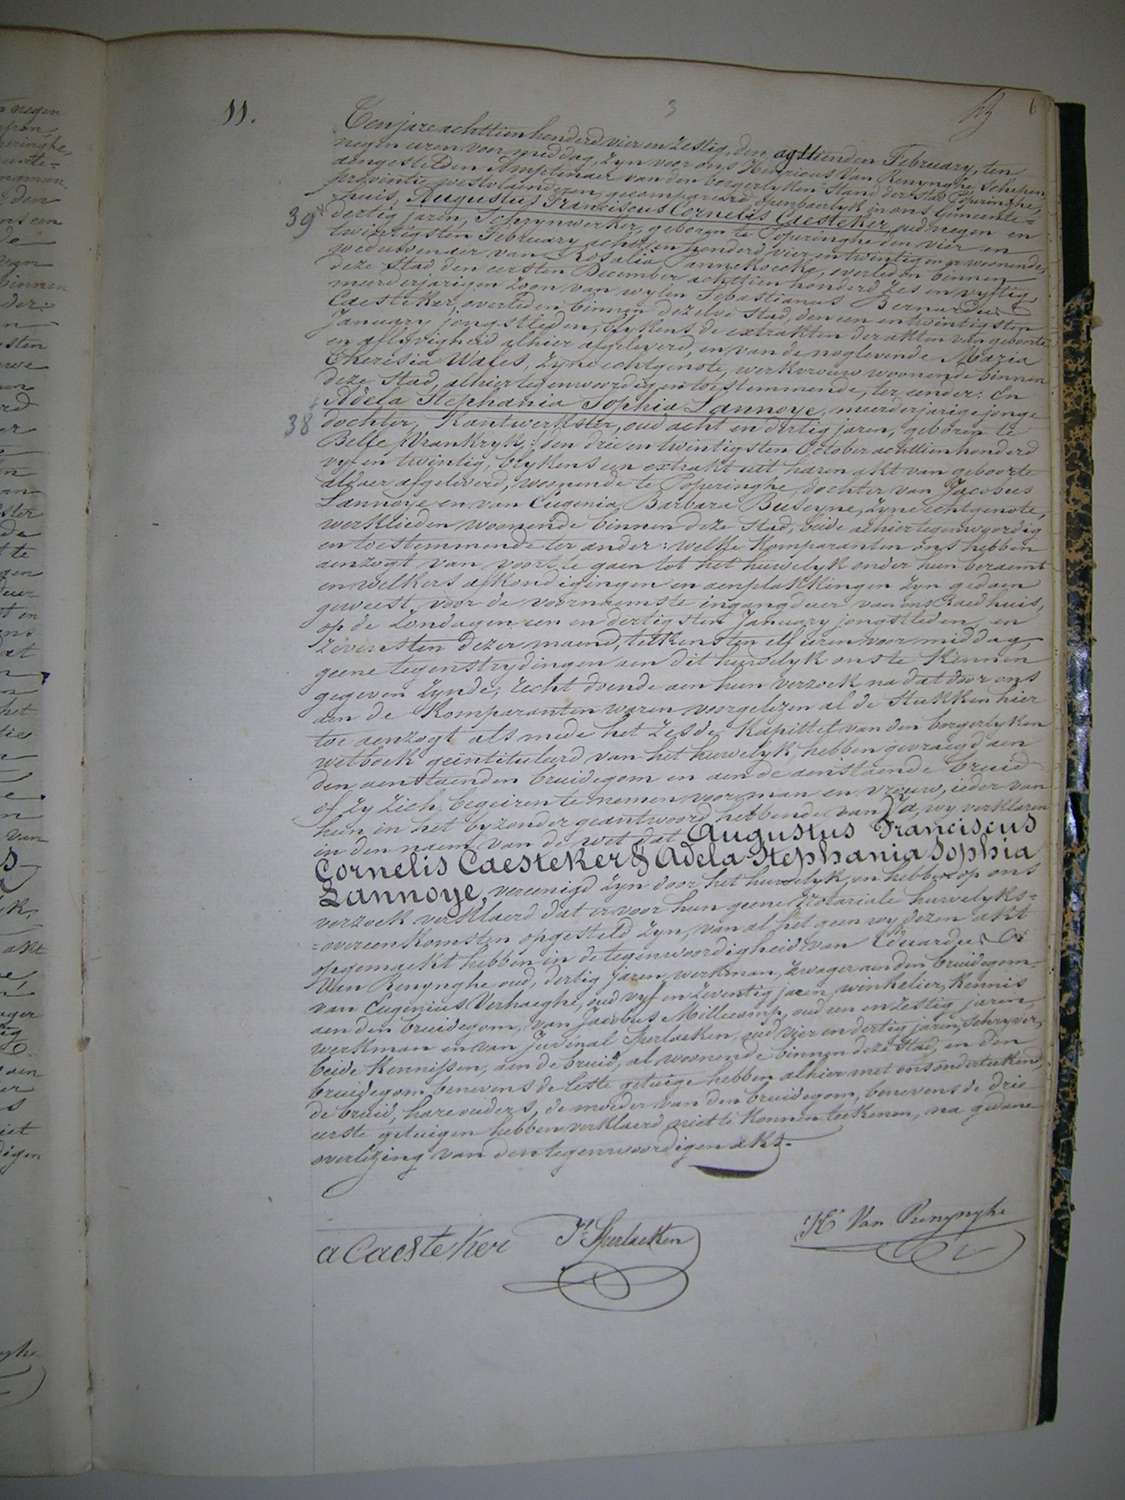 11.
3
Ten jare achttien honderd vier en zestig, den agttienden February, ten
negen uren voor middag, zyn voor ons Henricus Van Renynghe, Schepen
aengestelden Amptenaer van den borgerlyken Stand der Stad Poperinghe,
provintie westvlaenderen, gecompareerd openbaerlyk in ons Gemeente-
huis, Augustus Franciscus Cornelis Caesteker, oud negen en
39
dertig jaren, Schrynwerker, geboren te Poperinghe den vier en
twintigsten February achttien honderd vier en twintig en er woonende,
weduwenaer van Rosalia Pannekoecke, overleden binnen
deze Stad, den eersten December achttien honderd zes en vyftig,
meerderjarigen Zoon van wylen Sebastianus Bernardus
Caesteker, overleden binnen dezelve Stad, den een en twintigsten
January jongstleden, blykens de extrakten der akten van geboorte
en aflyvigheid alhier afgeleverd, en van de noglevende Maria
Theresia Waels, zyne echtgenote, werkvrouw woonende binnen
deze Stad, alhier tegenwoordig en toestemmende, ter eender: En
Adela Stephania Sophia Lannoye, meerderjarige jonge
38
dochter, Kantwerkster, oud acht en dertig jaren, geboren te
Belle, Vrankryk, den drie en twintigsten October achttien honderd
vyf en twintig, blykens een extrakt uit haren akt van geboorte
alhier afgeleverd, woonende te Poperinghe, dochter van Jacobus
Lannoye en van Eugenia Barbara Buseyne, zyne echtgenote,
werklieden woonende binnen deze Stad, beide alhier tegenwoordig
en toestemmende ter ander: welke Komparanten ons hebben
aenzogt van voort te gaen tot het huwelyk onder hun beraemt
en welkers afkondigingen en aenplakkingen zyn gedaen
geweest, voor de voornaemste ingangdeur van ons Raedhuis,
op de Zondagen een en dertigsten January jongstleden en
zevensten dezer maend, telkens ten elf uren voor middag,
geene tegenstrydingen aen dit huwelyk ons te Kennen
gegeven zynde, recht doende aen hun verzoek na dat door ons
aen de Komparanten waren voorgelezen al de stukken hier
toe aenzogt als mede het zesde Kapittel van den borgerlyken
wetboek geïntituleerd van het huwelyk, hebben gevraegd aen
den aenstaenden bruidegom en aen de aenstaende bruid
of zy zich begeiren te nemen voor man en vrouw, ieder van
hun in het byzonder geantwoord hebbende van Ja, wy verklaren
in den naem van de wet dat Augustus Franciscus
Cornelis Caesteker & Adela Stephania Sophia
Lannoye, vereenigd zyn door het huwelyk, en hebben op ons
verzoek verklaerd dat er voor hun geene Notariale huwelyks-
overeenkomsten opgesteld zyn, van al het geen wy dezen akt
opgemaekt hebben in de tegenwoordigheid van Eduardus
Van Renynghe oud, dertig jaren, werkman, zwager aen den bruidegom,
van Eugenius Verhaeghe, oud vyf en zeventig jaren, winkelier, Kennis
aen den bruidegom, van Jacobus Millecamp, oud een en zestig jaren,
werkman en van Juvenal Sperlaeken, oud vier en dertig jaren, schryver,
beide Kennissen, aen de bruid, al woonende binnen deze Stad, en den
bruidegom benevens de leste getuige hebben alhier met ons onderteekend,
de bruid, hare ouders, de moeder van den bruidegom, benevens de drie
eerste getuigen hebben verklaerd niet te Konnen teekenen, na gedane
overlezing van den tegenwoordigen akt.
a Caesteker Jl Sperlaeken Hri Van Renynghe